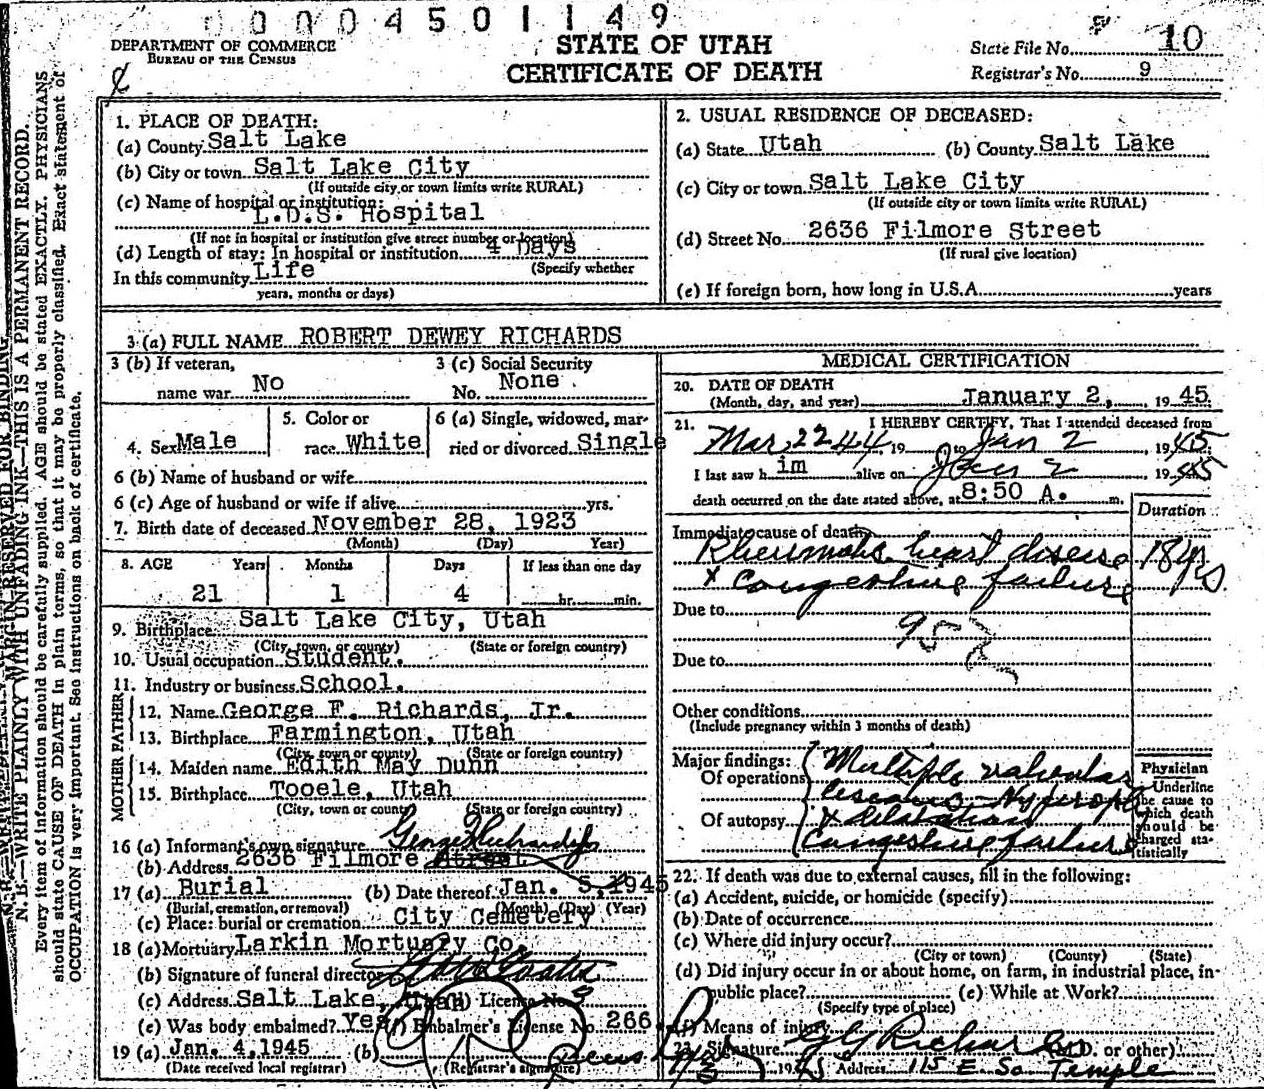 0004501149
DEPARTMENT OF COMMERCE
BUREAU OF THE CENSUS
STATE OF UTAH
CERTIFICATE OF DEATH
State File No. 10
Registrar's No. 9
N. B.—WRITE PLAINLY WITH UNFADING INK—THIS IS A PERMANENT RECORD.
Every item of information should be carefully supplied. AGE should be stated EXACTLY. PHYSICIANS
should state CAUSE OF DEATH in plain terms, so that it may be properly classified. Exact statement of
OCCUPATION is very important. See instructions on back of certificate.
1. PLACE OF DEATH:
(a) County Salt Lake
(b) City or town Salt Lake City
(If outside city or town limits write RURAL)
(c) Name of hospital or institution:
L.D.S. Hospital
(If not in hospital or institution give street number or location)
(d) Length of stay: In hospital or institution 4 Days
In this community Life (Specify whether
years, months or days)
2. USUAL RESIDENCE OF DECEASED:
(a) State Utah (b) County Salt Lake
(c) City or town Salt Lake City
(If outside city or town limits write RURAL)
(d) Street No. 2636 Filmore Street
(If rural give location)
(e) If foreign born, how long in U.S.A. years
3 (a) FULL NAME ROBERT DEWEY RICHARDS
3 (b) If veteran, name war No
3 (c) Social Security No. None
4. Sex Male
5. Color or race White
6 (a) Single, widowed, married or divorced Single
6 (b) Name of husband or wife
6 (c) Age of husband or wife if alive yrs.
7. Birth date of deceased November 28, 1923
(Month) (Day) Year)
8. AGE Years Months Days If less than one day
21 1 4 hr. min.
9. Birthplace Salt Lake City, Utah
(City, town, or county) (State or foreign country)
10. Usual occupation Student.
11. Industry or business School.
FATHER
12. Name George F. Richards, Jr.
13. Birthplace Farmington, Utah
(City, town or county) (State or foreign country)
MOTHER
14. Maiden name Edith May Dunn
15. Birthplace Tooele, Utah
(City, town or county) (State or foreign country)
16 (a) Informant's own signature George F Richards Jr
(b) Address 2636 Filmore Street
17 (a) Burial (b) Date thereof Jan. 5, 1945
(Burial, cremation, or removal) (Month) (Day) (Year)
(c) Place: burial or cremation City Cemetery
18 (a) Mortuary Larkin Mortuary Co.
(b) Signature of funeral director
(c) Address Salt Lake, Utah (d) License No. 3
(e) Was body embalmed? Yes (f) Embalmer's License No. 266
19 (a) Jan. 4, 1945 (b)
(Date received local registrar) (Registrar's signature)
MEDICAL CERTIFICATION
20. DATE OF DEATH
(Month, day, and year) January 2, 1945
21. I HEREBY CERTIFY, That I attended deceased from
Mar 22 44, 19 to Jan 2, 1945
I last saw him alive on Jan 2 1945
death occurred on the date stated above, at 8:50 A. m.
Duration
Immediate cause of death
Rheumatic heart disease 18 yrs.
+ congestive failure
Due to
95
Due to
Other conditions
(Include pregnancy within 3 months of death)
Major findings:
Of operations
Of autopsy
Multiple valvular
lesions - Hypertroph
+ dilatation
Congestive failure
Physician
Underline
the cause to
which death
should be
charged sta-
tistically
22. If death was due to external causes, fill in the following:
(a) Accident, suicide, or homicide (specify)
(b) Date of occurrence
(c) Where did injury occur?
(City or town) (County) (State)
(d) Did injury occur in or about home, on farm, in industrial place, in-
public place? (e) While at Work?
(Specify type of place)
(f) Means of injury
23. Signature G G Richards (M.D. or other)
1945 Address 115 E So Temple